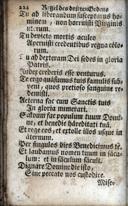 224 Regel des dritten Ordens
Tu ad liberandum suscepturus ho-
minem, non horruisti Virginis
uterum.
Tu devicto mortis aculeo
Aperuisti credentibus regna cœlo-
rum.
Tu ad dexteram Dei sedes in gloria
Patris.
Judex crederis esse venturus.
Te ergo quæsumus tuis famulis sub-
veni, quos pretioso sanguine re-
demisti.
Æterna fac cum Sanctis tuis
In gloria numerari.
Salvum fac populum tuum Domi-
ne, et benedic hæreditati tuæ.
Et rege eos, et extolle illos usque in
æternum.
Per singulos dies Benedicimus te.
Et laudamus nomen tuum in sæcu-
lum: et in sæculum sæculi.
Dignare Domine die isto,
Sine peccato nos custodire.
Mise-